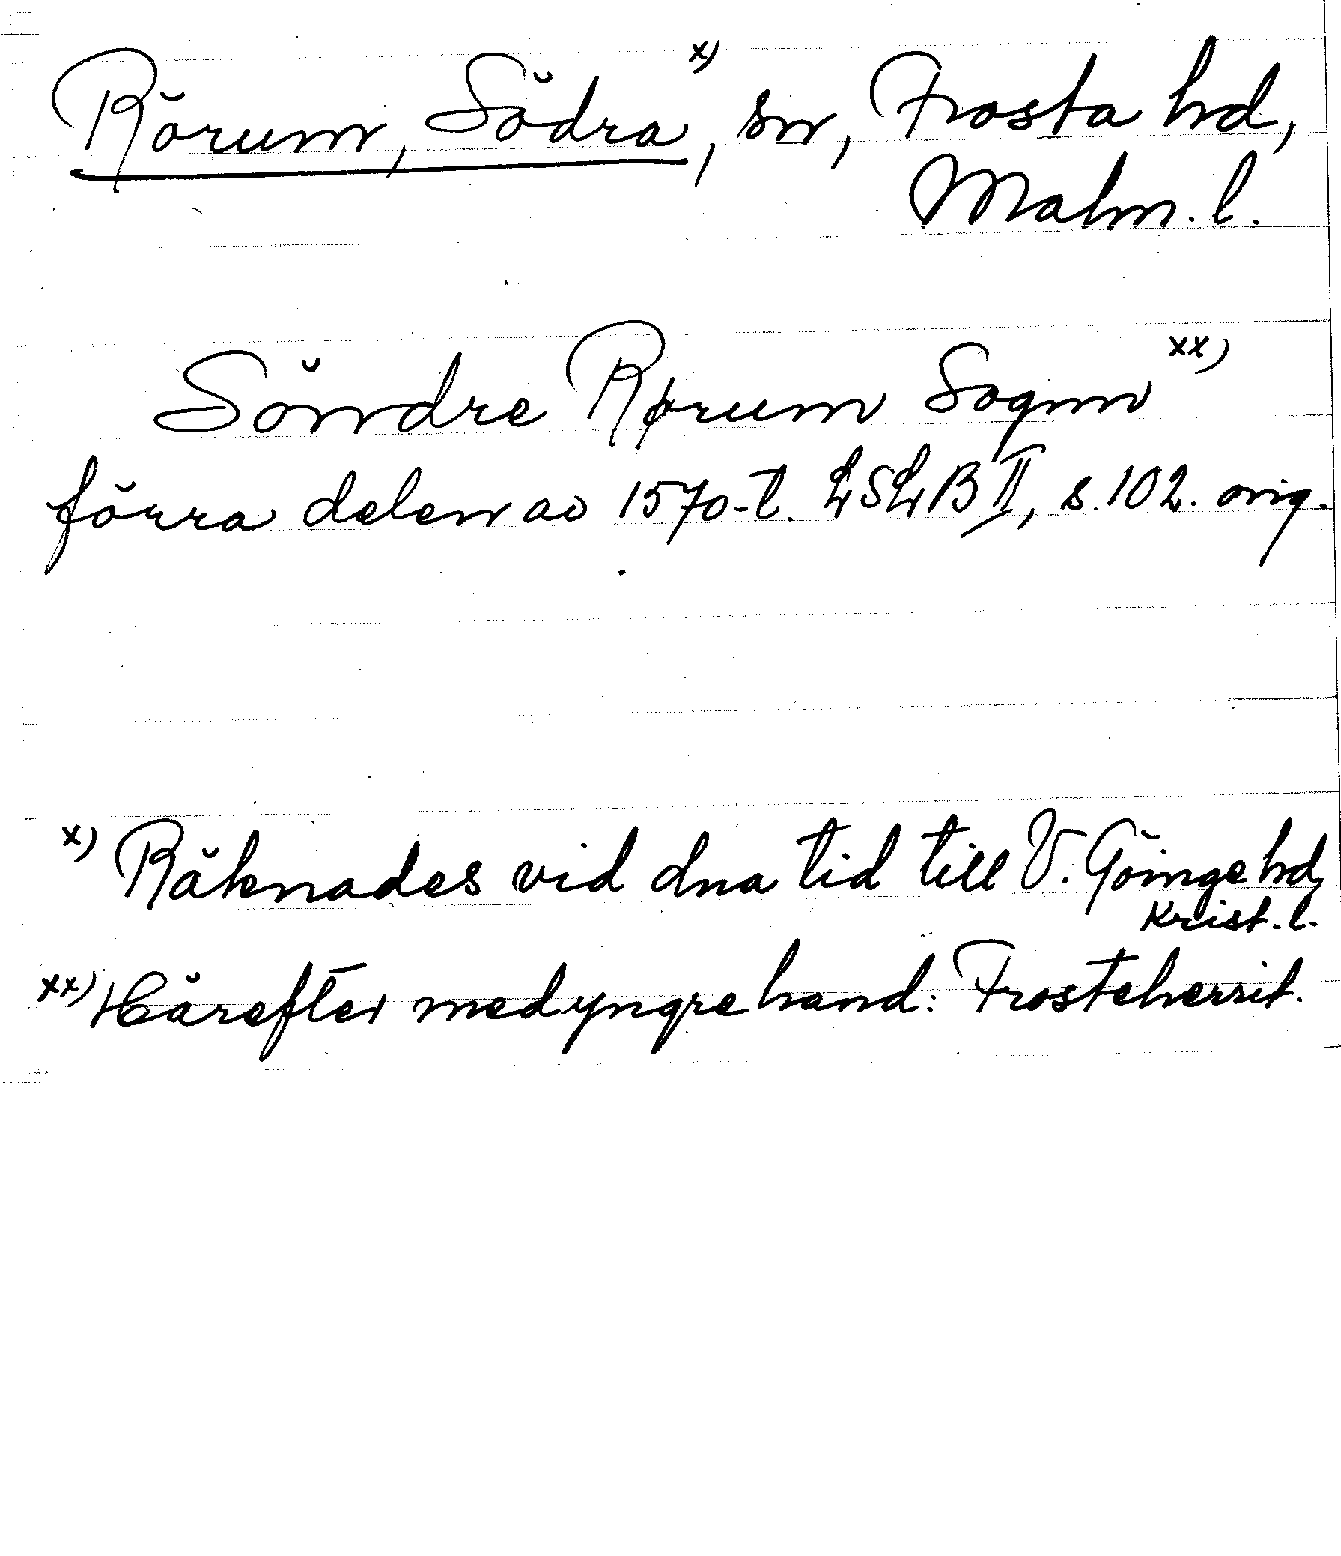 Rörum, Södra x), sn, Frosta hd,
Malm. l.
Söndre Rørum Sognn xx)
förra delen av 1570-t. LSLB II, s. 102. orig.
x) Räknades vid dna tid till V. Göinge hd,
Krist. l.
xx) Härefter med yngre hand: Frosteherrit.